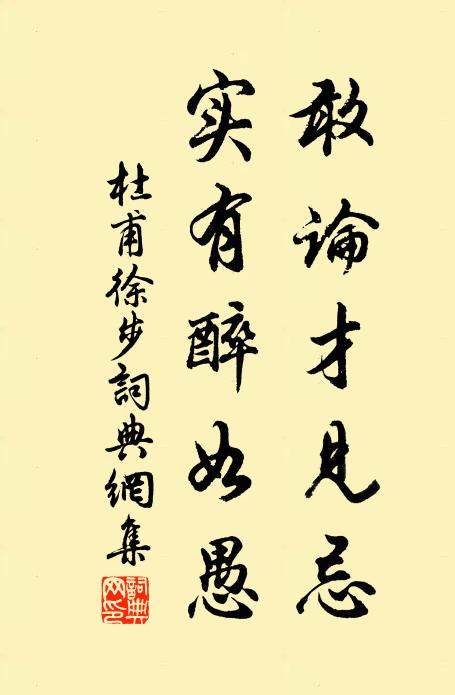 敢論才見忌
实有醉如愚
杜甫徐步詞典網集
詞典网印